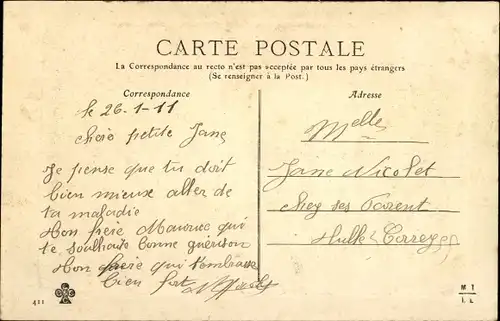 CARTE POSTALE
La Correspondance au recto n'est pas acceptée par tous les pays étrangers
(Se renseigner à la Post.)
Correspondance
Adresse
le 26-1-11
chère petite Jane
Je pense que tu doit
bien mieux aller de
ta maladie
Mon frère Maurice qui
te souhaite bonne guérison
Mon frère qui t'embrasse
bien fort
411
Melle
Jane Nicolet
chez ses Parent
Corrèze
M T
I. L